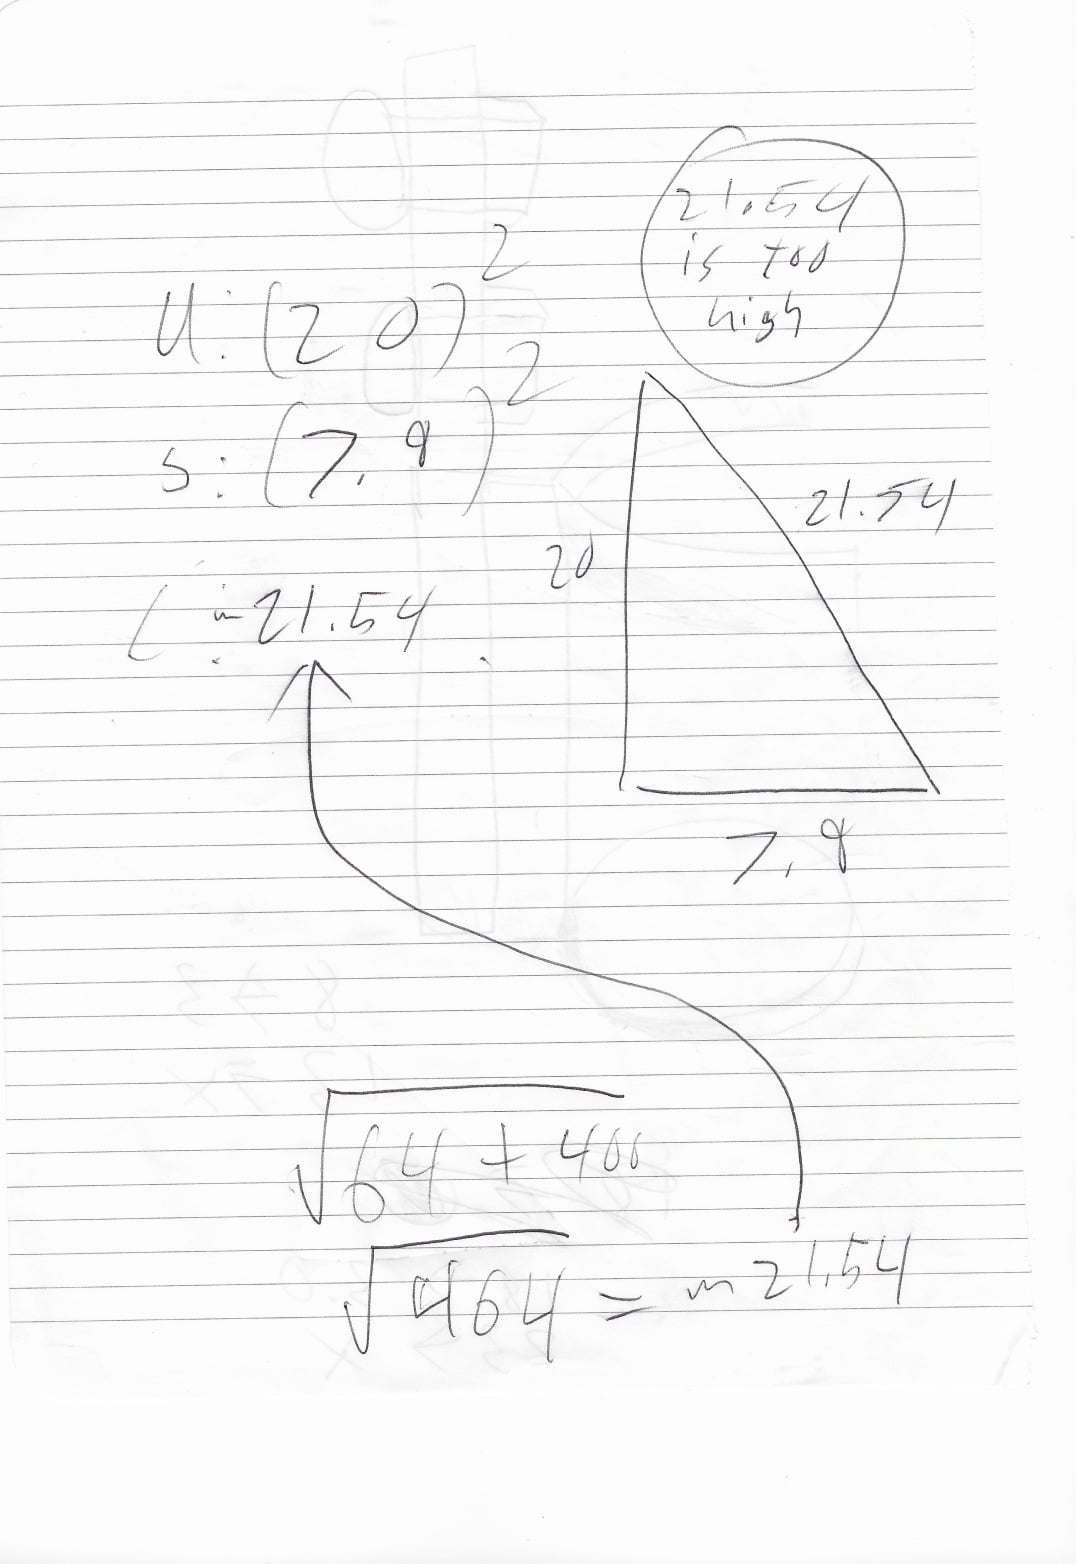 21.54
is too
high
U: (20)²
s: (7.9)²
21.54
20
21.54
7.9
√64 + 400
√464 = ~21.54